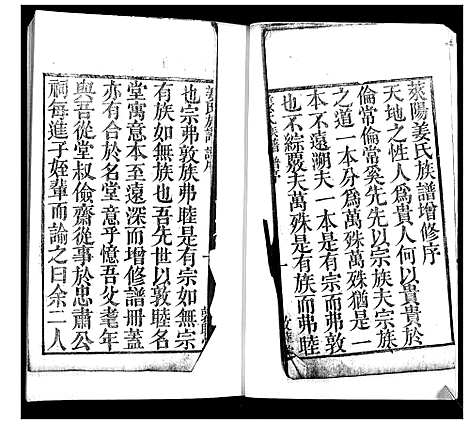 萊陽姜氏族譜增修序
天地之性人為貴人何以貴貴於
倫常倫常奚先先以宗族夫宗族
之道一本分為萬殊萬殊猶一
本不遠溯夫一本是有宗而弗敦
也不綜覈夫萬殊是有族而弗睦
姜氏族譜 譜序
也宗弗敦族弗睦是有宗如無宗
有族如無族也吾先世以敦睦名
堂寓意本至遠深而增修譜冊蓋
亦有合於名堂意乎憶吾父耄年
與吾從堂叔儉齋從事於忠肅公
祠每進子姪輩而諭之曰余二人